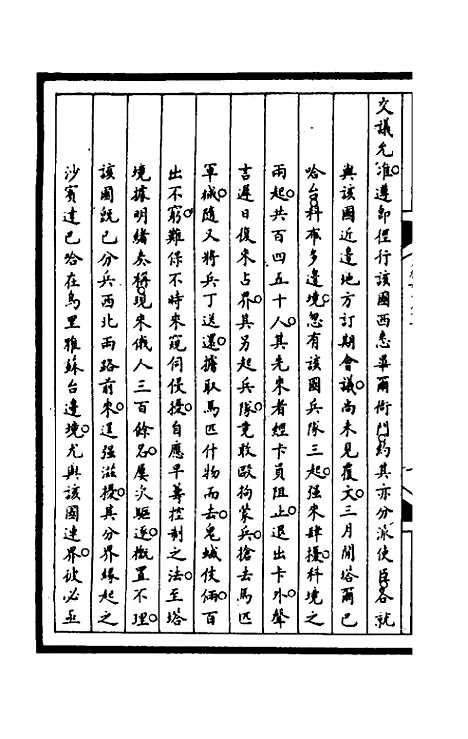 文議允准遵即徑行該國西悉畢爾衙門約其亦分派使臣各就
與該國近邊地方訂期會議尚未見覆文三月間塔爾巴
哈台科布多邊境忽有該國兵隊三起強來肆擾科境之
兩起共百四五十人其先來者經卡員阻止退出卡外聲
言遲日復來占界其另起兵隊竟敢毆拘蒙兵搶去馬匹
軍械隨又將兵丁送還攜取馬匹什物而去鬼蜮伎倆百
出不窮難保不時來窺伺侵擾自應早籌控制之法至塔
境據明緒奏稱現來俄人三百餘名屢次驅逐概置不理
該國既已分兵西北兩路前來逞強滋擾其分界緣起之
沙賓達巴哈在烏里雅蘇台邊境尤與該國連界彼必亟